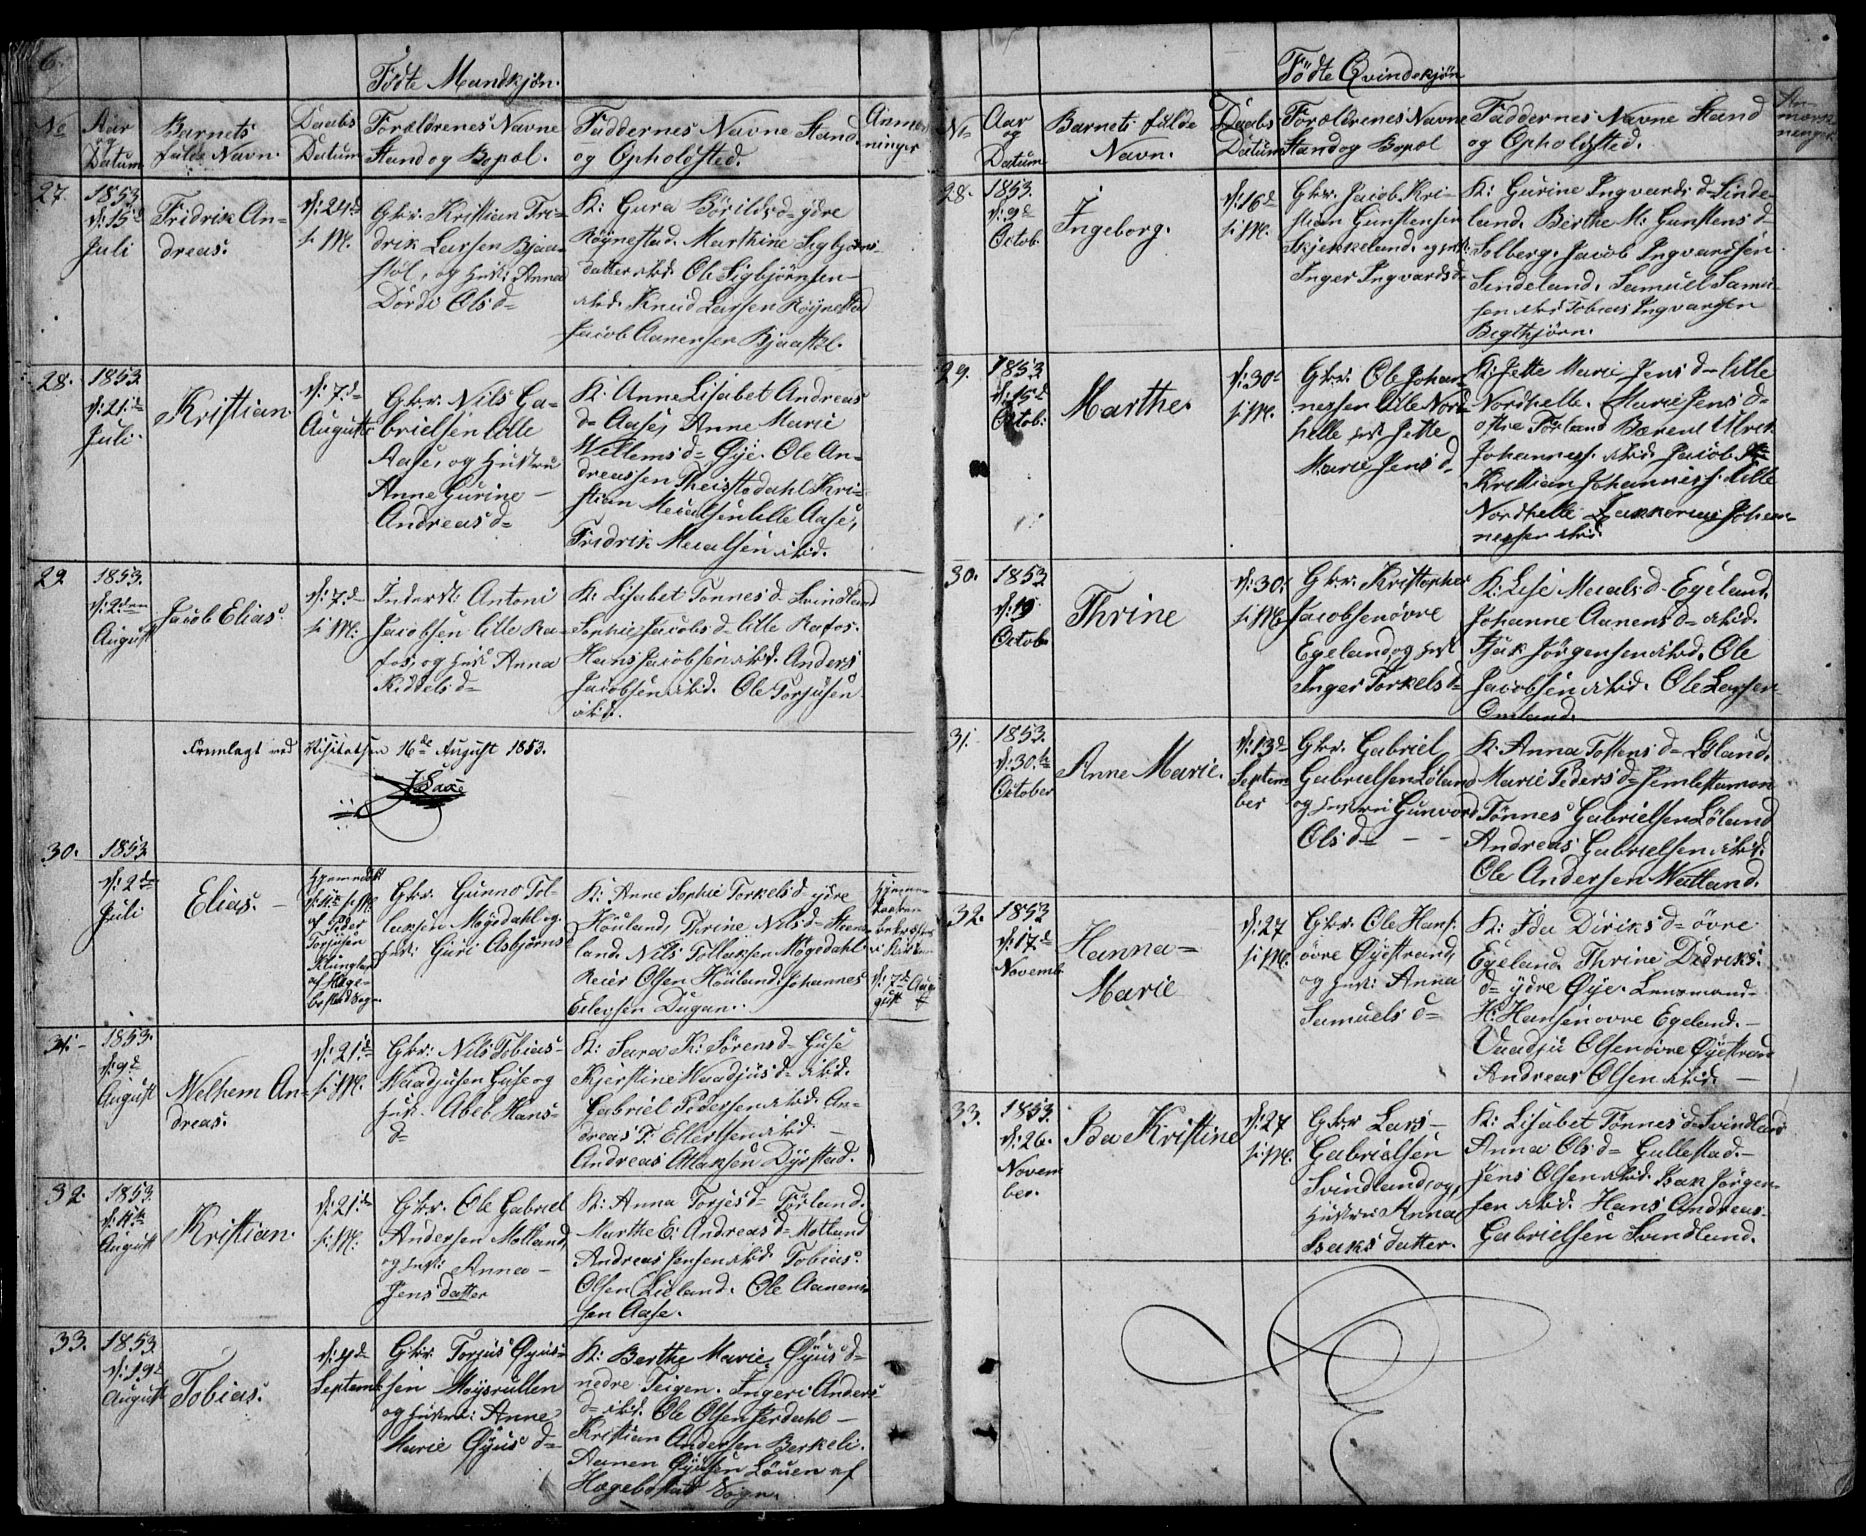 6.
Födte Mandkjøn.
No
Aar
og
Datum
Barnets
fulde Navn.
Daabs
Datum
Forældrenes Navne
Stand og Bopæl.
Faddernes Navne Stand
og Opholdsted.
Anmær
ninger
27.
1853
d: 15de
Juli
Fridrik An-
dreas.
d: 24de
s: M.
Gkr. Kristian Fri-
drik Larsen Bjaa-
støl, og Hust: Anna
Dorde Olsd=
K: Gura Börildsd= ydre
Røynestad. Marthine Sigbjørns
datter ibid. Ole Sigbjörnsen
ibid. Knud Larsen Røynestad
Jacob Aanensen Bjaastøl.
28.
1853.
d: 21de
Juli.
Kristian.
d: 7de
August
Gkr. Nils Ga-
brielsen lille
Aase, og Hustru
Anne Gurine
Andreasd=
K: Anne Lisabet Andreas
d= Aase, Anne Marie
Willemsd= Øye. Ole An-
dreassen Theistedahl Kri-
stian Mealsen lille Aase,
Fridrik Mealsen ibid.
29
1853.
d: 2den
August
Jacob Elias.
d: 7de
s: M:
Inderst: Antoni
Jacobsen lille Ra-
fos, og Hust Anna
Kiddelsd=
K: Lisabet Tönnesd. Svindland
Sophie Jacobsd= lille Rafos.
Hans Jacobsen ibid. Anders
Jacobsen ibid. Ole Torjusen
ibid.
Fremlagt ved Visitatsen 16de August 1853.
30.
1853
d: 2de
Juli
Elias.
Hjemmedøbt
s: M.
af Peder
Torjusen
Klungland
af Hæge-
bostad sogn
Gkr. Gunno Tol-
laksen Møgdahl og
Hust: Guri Asbjørns
K: Anne Sophie Torkelsd ydre
Houland, Thrine Nilsd= Steens
land. Nils Tollaksen Møgdahl
Reier Olsen Houland. Johannes
Eilevsen Dugan.
Hjemme
daaben
bekræftet
i Kirken
d: 7de Au
gust
31.
1853.
d: 9de
August
Welhem An-
dreas.
d: 21de
s: M.
Gkr: Nils Tobias-
Waadjusen Guse og
Hust. Abel Hans-
d=
K: Sara K: Sörensd= Guse
Kjerstine Waadjusd= ibid.
Gabriel Pedersen ibid. An-
dreas T. Ellertsen ibid.
Andreas Aslaksen Dyrstad.
32.
1853.
August
Kristian.
d: 21de
s: M:
Gkr. Ole Gabriel
Andersen Motland,
og Hust: Anna
Jensdatter
K: Anna Torjesd= Förland.
Marthe E: Andreasd= Motland
Andreas Jensen ibid. Tobias
Olsen Lieland. Ole Aanen-
sen Aase.
33.
1853
d: 19de
August
Tobias.
d: 4de
Septemb
Gkr. Torjus Öyus-
sen Moysrullen
og Hustru: Anne
Marie Öyusd=
K: Berthe Marie Öyusd=
nedre Teigen. Ingeri Anders
d= ibid. Ole Olsen Jerdahl
Kristian Andersen Berkeli.
Aanen Öyusen Löuen af
Hægebostad Sogn.
Födte Qvindekjøn
No
Aar
og
Datum
Barnets fulde
Navn.
Daabs
Datum
Forældrenes Navne
Stand og Bopæl
Faddernes Navne Stand
og Opholdsted.
An
mærk
ninger
28.
1853
d: 9de
Octob.
Ingeborg.
d: 16de
s: M.
Gkr. Jacob Kri-
stian Gunstensen
Skjekkeland. og Hust:
Inger Ingvardsd=
K: Gurine Ingvardsd= Linde
land. Berthe M: Gunstensd=
Solberg. Jacob Ingvardsen
Lindeland. Samuel Samu-
sen ibid Tobias Ingvardsen
Begthjørn.
29.
1853
d: 15de
Octob:
Marthe.
d: 30te
s: M.
Gkr. Ole Johan-
nessen lille Nord
helle Hust. Jette
Marie Jensd=
K: Jette Marie Jensd= lille
Nordhelle. Marie Jensd=
østre Förland Bærent Ulrik
Johanness. ibid. Jacob
Kristian Johanness. lille
Nordhelle Johan-
nessen ibid.
30.
1853
d: 19
Octob
Thrine
d: 30te
s: M.
Gkr. Kristopher
Jacobsen øvre
Egeland, og Hust
Inger Torkelsd=
K: Lise Mealsd= Egeland.
Johanne Aanensd= ibid.
Isak Jörgensen ibid. Ole
Jacobsen ibid. Ole Larsen
Omland.
31.
1853.
d: 30te
October
Anne Marie.
d: 13de
Septem-
ber
Gkr. Gabriel
Gabrielsen Løland
og Hustru Gunvor
Olsd=
K: Anna Tostensd= Løland.
Marie Pedersd= Jemlestamon
Tönnes Gabrielsen Löland
Andreas Gabrielsen ibid.
Ole Andersen Watland.
32.
1853
d: 17de
Novemb.
Hanna=
Marie
d: 27
s: M.
Gkr. Ole Hans.
övre Øyestrand,
og Hust: Anna
Samuelsd=
K: Ida Diriksd= övre
Egeland. Thrine Didriks.
d= ydre Øye. Lensmand
H. Hansen ovre Egeland.
Vaadju Olsen övre Øyestran
Andreas Olsen ibid.
33.
1853.
d: 26.
Novem
ber.
Isa Kristine
d: 27
s: M.
Gkr Lars
Gabrielsen
Svindland, og
Hustru Anna
Isaksdatter.
K: Lisabet Tönnesd Svindland
Anna Olsd= Gullestad.
Jens Olsen ibid. Isak Jörgen-
sen ibid. Hans Andreas
Gabrielsen Svindland.